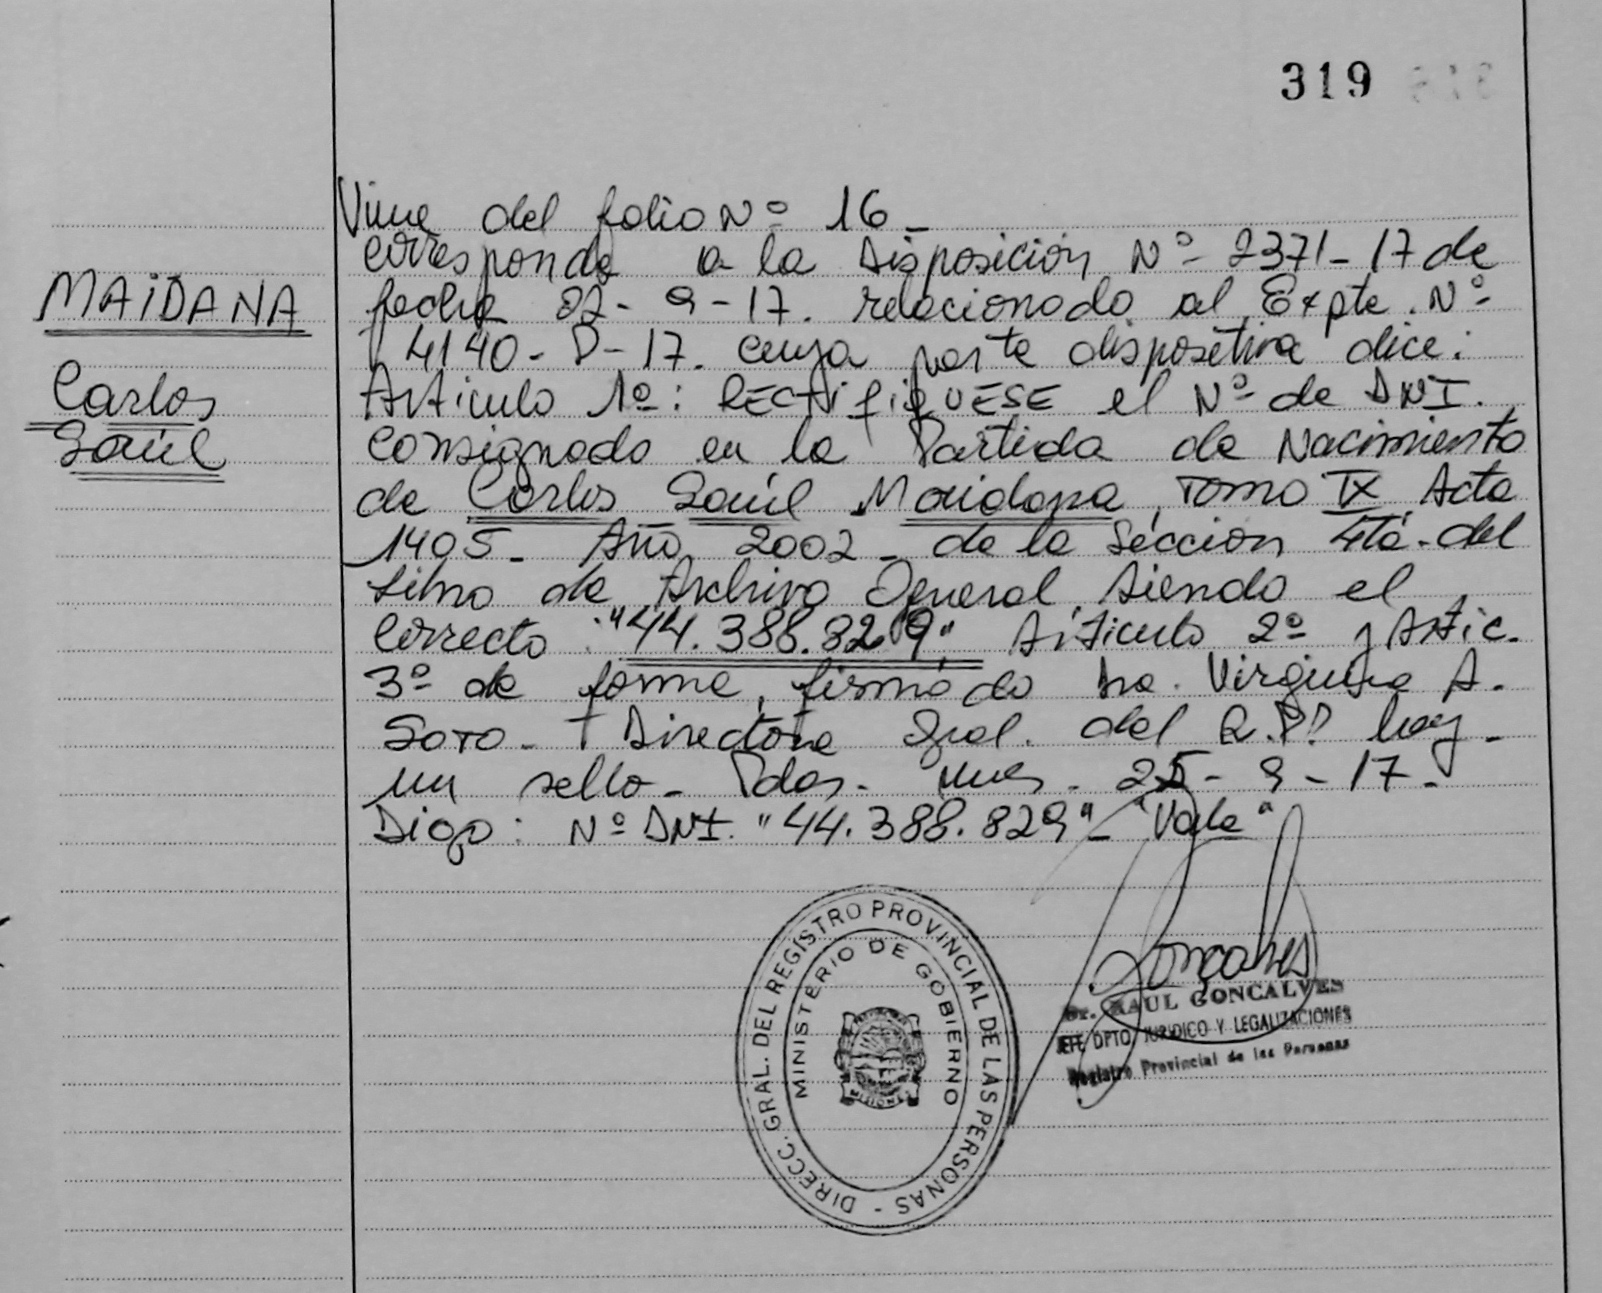 319
MAIDANA
Carlos
Saúl
Viene del folio Nº 16 -
corresponde a la Disposición Nº 2371-17 de
fecha 22-9-17. relacionado al Expte. Nº
4140-D-17. cuya parte dispositiva dice:
Articulo 1º: RECTIFIQUESE el Nº de DNI.
consignado en la Partida de Nacimiento
de Carlos Saúl Maidana, Tomo IX Acta
1405- Año 2002 - de la Sección 4ta. del
Libro de Archivo General siendo el
correcto: "44.388.829". Articulo 2º y Artic.
3º de forma, firmado Dra. Virginia A.
Soto - Directora Gral. del R.P.P hay -
un sello - Pdas. Mnes. 25-9-17-
Digo: Nº DNI. "44.388.829" - "Vale"
DIRECC. GRAL. DEL REGISTRO PROVINCIAL DE LAS PERSONAS -
MINISTERIO DE GOBIERNO
MISIONES
Dr. RAUL GONCALVES
JEFE DPTO. JURIDICO Y LEGALIZACIONES
Registro Provincial de las Personas